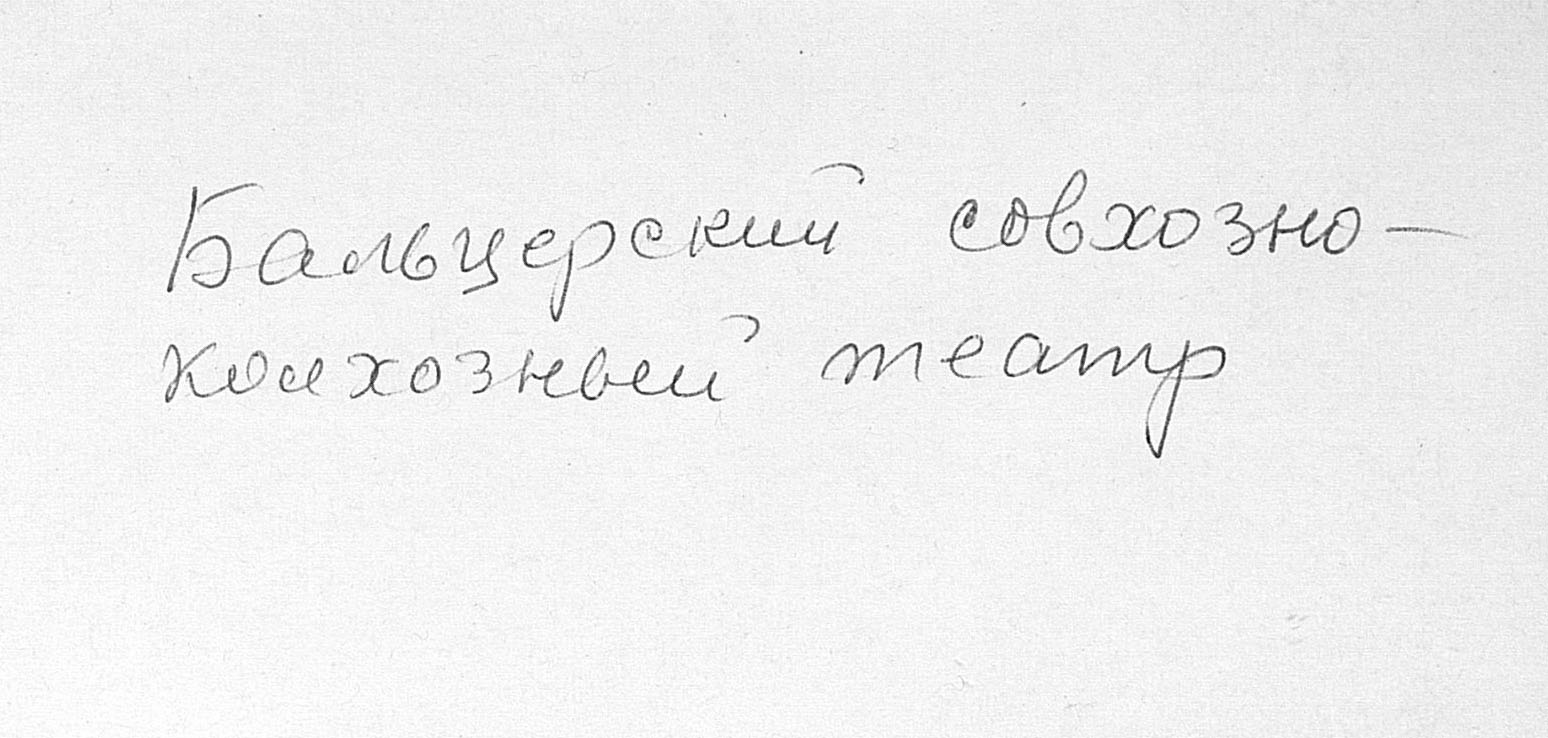 Бальцерский совхозно-
колхозный театр